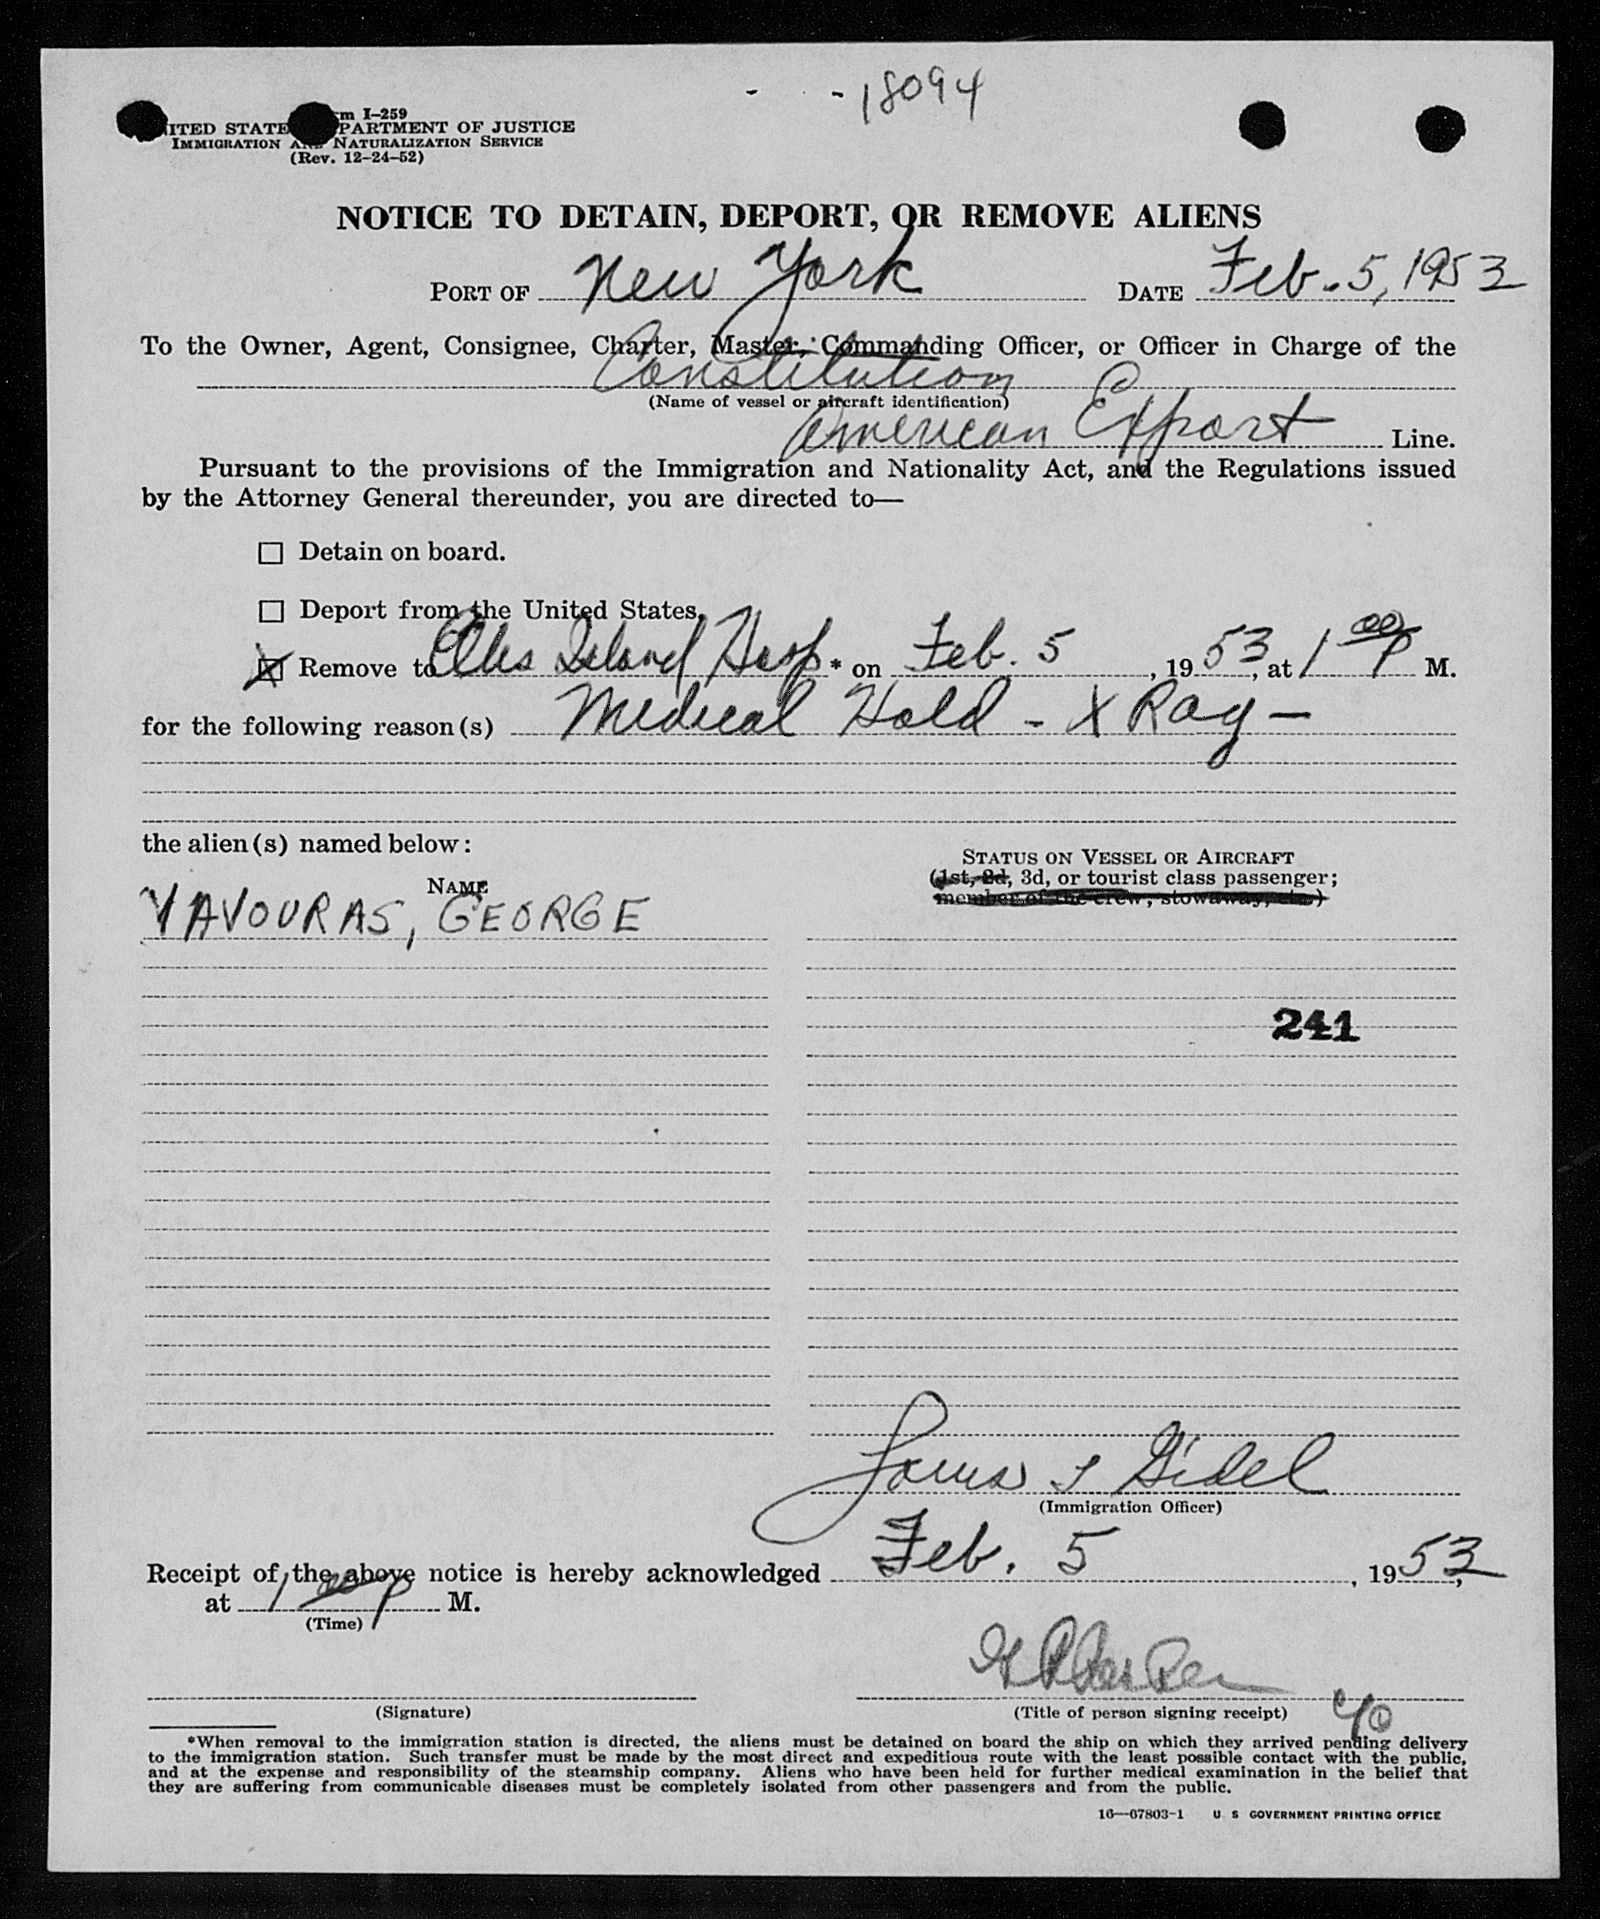 18094
m I-259
ITED STATE PARTMENT OF JUSTICE
IMMIGRATION AND NATURALIZATION SERVICE
(Rev. 12-24-52)
NOTICE TO DETAIN, DEPORT, OR REMOVE ALIENS
PORT OF New York DATE Feb. 5, 1953
To the Owner, Agent, Consignee, Charter, Master, Commanding Officer, or Officer in Charge of the
Constitution
(Name of vessel or aircraft identification)
American Export Line.
Pursuant to the provisions of the Immigration and Nationality Act, and the Regulations issued
by the Attorney General thereunder, you are directed to—
☐ Detain on board.
☐ Deport from the United States.
☒ Remove to Ellis Island Hosp.* on Feb. 5, 1953, at 1 00 P M.
for the following reason(s) Medical Hold - X Ray -
the alien(s) named below:
STATUS ON VESSEL OR AIRCRAFT
NAME (1st, 2d, 3d, or tourist class passenger;
member of the crew, stowaway, etc.)
YAVOURAS, GEORGE
241
Louis Gidel
(Immigration Officer)
Receipt of the above notice is hereby acknowledged Feb. 5, 1953,
at 1 00 P M.
(Time)
(Signature) (Title of person signing receipt)
*When removal to the immigration station is directed, the aliens must be detained on board the ship on which they arrived pending delivery
to the immigration station. Such transfer must be made by the most direct and expeditious route with the least possible contact with the public,
and at the expense and responsibility of the steamship company. Aliens who have been held for further medical examination in the belief that
they are suffering from communicable diseases must be completely isolated from other passengers and from the public.
16—67803-1 U S GOVERNMENT PRINTING OFFICE